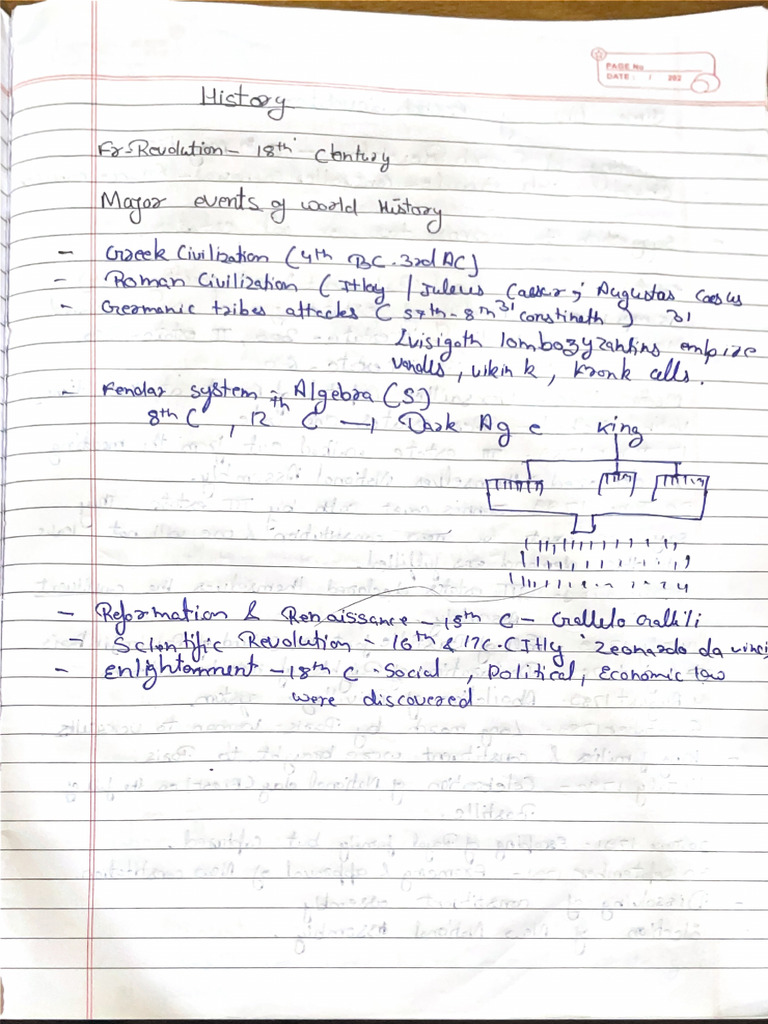 PAGE No
DATE: / 202
History
Fr-Revolution - 18th Century
Major events of world History
- Greek Civilization (4th BC - 3rd AC)
- Roman Civilization (Itlay / Juleus Caesar; Augustas Caesus
- Germanic tribes attacks ( 5th - 8th 31
31
Lvisigoth lombozyzantins empire
vandls, vikink, Kronk cells.
- Fendar system - Algebra (S)
8th C, 12th C Dark Age King
- Reformation & Renaissance - 15th C - Gallelo Gallili
- Scientific Revolution - 16th & 17c. Itly Leonardo da vinci
- Enlightonment - 18th C - Social, Political, Economic law
were discovered